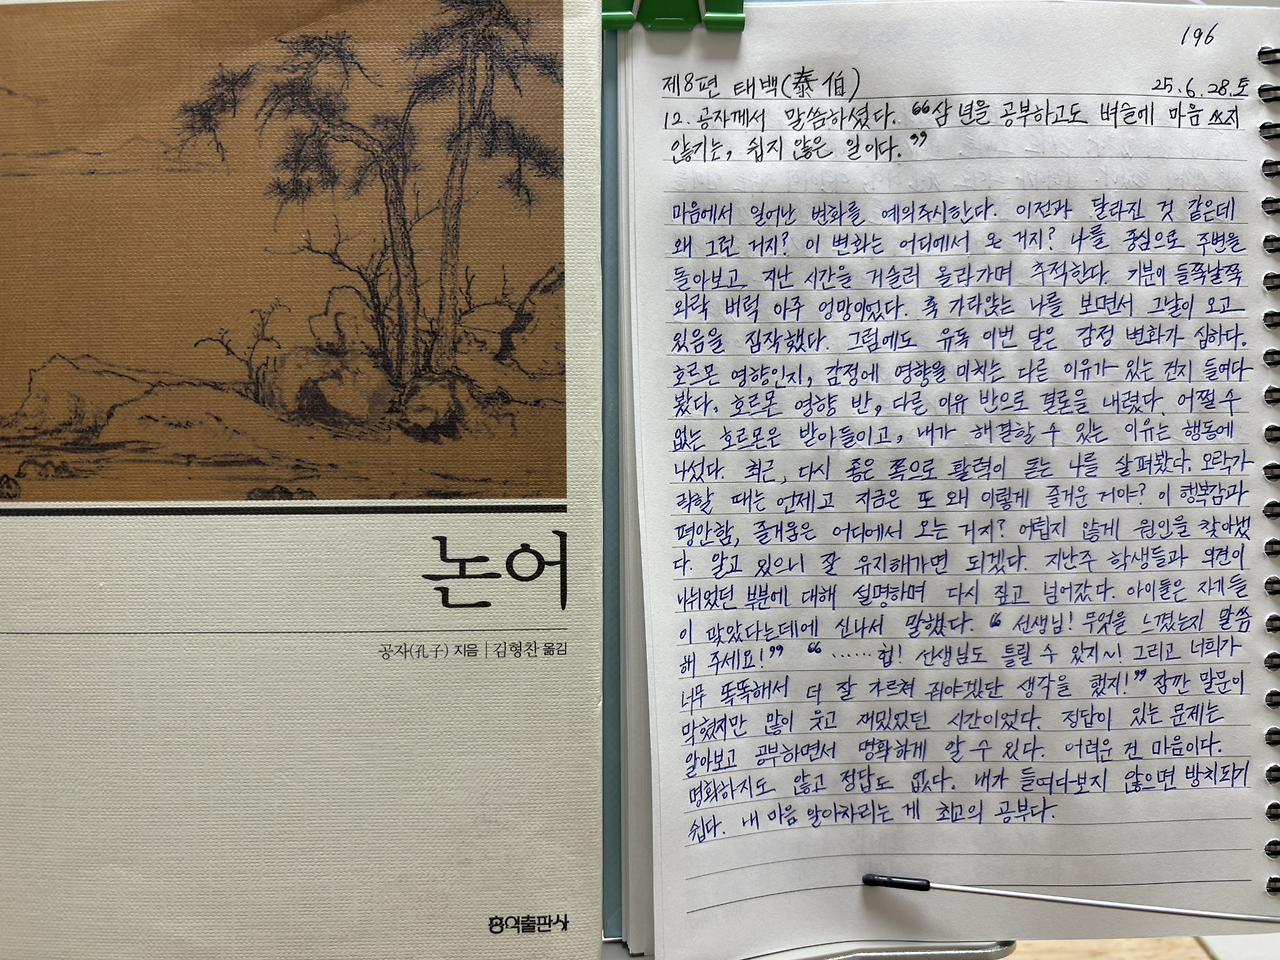 논어
공자(孔子) 지음 | 김형찬 옮김
홍익출판사
196
제8편 태백(泰伯) 25.6.28.토
12. 공자께서 말씀하셨다. "삼 년을 공부하고도 벼슬에 마음 쓰지
않기는, 쉽지 않은 일이다."
마음에서 일어난 변화를 예의주시한다. 이전과 달라진 것 같은데
왜 그런 거지? 이 변화는 어디에서 온 거지? 나를 중심으로 주변을
돌아보고, 지난 시간을 거슬러 올라가며 추적한다. 기분이 들쭉날쭉
와락 버럭 아주 엉망이었다. 훅 가라앉는 나를 보면서 그날이 오고
있음을 짐작했다. 그럼에도 유독 이번 달은 감정 변화가 심하다.
호르몬 영향인지, 감정에 영향을 미치는 다른 이유가 있는 건지 들여다
봤다. 호르몬 영향 반, 다른 이유 반으로 결론을 내렸다. 어쩔 수
없는 호르몬은 받아들이고, 내가 해결할 수 있는 이유는 행동에
나섰다. 최근, 다시 좋은 쪽으로 활력이 돋는 나를 살펴봤다. 오락가
락할 때는 언제고 지금은 또 왜 이렇게 즐거운 거야? 이 행복감과
평안함, 즐거움은 어디에서 오는 거지? 어렵지 않게 원인을 찾아냈
다. 알고 있으니 잘 유지해가면 되겠다. 지난주 학생들과 의견이
나뉘었던 부분에 대해 설명하며 다시 짚고 넘어갔다. 아이들은 자기들
이 맞았다는데에 신나서 말했다. "선생님! 무엇을 느꼈는지 말씀
해 주세요!" "……헙! 선생님도 틀릴 수 있지~! 그리고 너희가
너무 똑똑해서 더 잘 가르쳐 줘야겠단 생각을 했지!" 잠깐 말문이
막혔지만 많이 웃고 재밌었던 시간이었다. 정답이 있는 문제는
알아보고 공부하면서 명확하게 알 수 있다. 어려운 건 마음이다.
명확하지도 않고 정답도 없다. 내가 들여다보지 않으면 방치되기
쉽다. 내 마음 알아차리는 게 최고의 공부다.